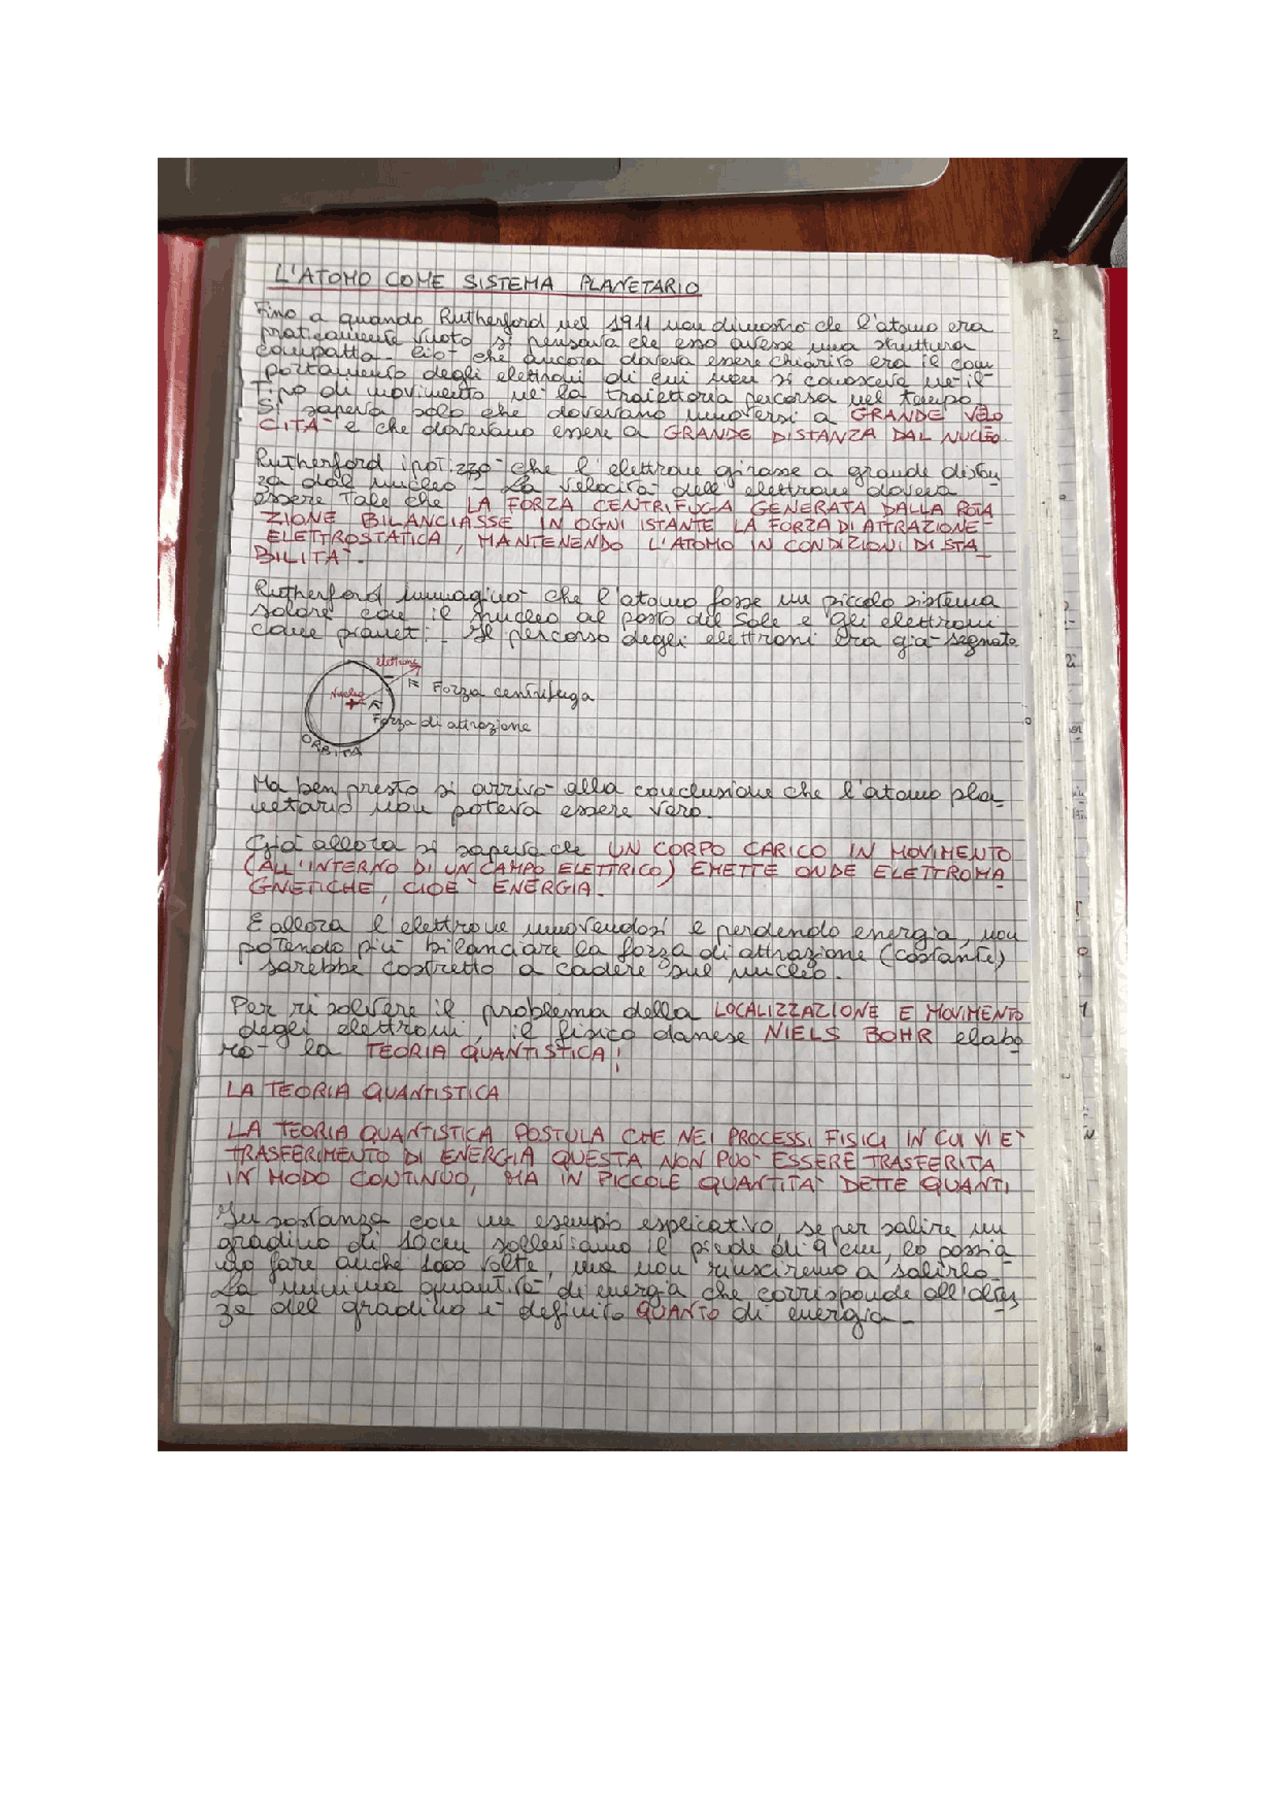 L'ATOMO COME SISTEMA PLANETARIO
Fino a quando Rutherford nel 1911 non dimostrò che l'atomo era
praticamente vuoto si pensava che esso avesse una struttura
compatta. Ciò che ancora doveva essere chiarito era il com
portamento degli elettroni di cui non si conosceva nè il
Tipo di movimento nè la traiettoria percorsa nel tempo
Si sapeva solo che dovevano muoversi a GRANDE VELO
CITÀ e che dovevano essere a GRANDE DISTANZA DAL NUCLEO.
Rutherford ipotizzò che l'elettrone girasse a grande distan
za dal nucleo - La velocità dell'elettrone doveva
essere Tale che LA FORZA CENTRIFUGA GENERATA DALLA ROTA
ZIONE BILANCIASSE IN OGNI ISTANTE LA FORZA DI ATTRAZIONE
ELETTROSTATICA, MANTENENDO L'ATOMO IN CONDIZIONI DI STA
BILITÀ.
Rutherford immaginò che l'atomo fosse un piccolo sistema
solare con il nucleo al posto del Sole e gli elettroni
come pianeti. Il percorso degli elettroni era già segnato
elettrone
Nucleo
+
F Forza centrifuga
F
Forza di attrazione
ORBITA
Ma ben presto si arrivò alla conclusione che l'atomo pla-
netario non poteva essere vero.
Già allora si sapeva che UN CORPO CARICO IN MOVIMENTO
(ALL'INTERNO DI UN CAMPO ELETTRICO) EMETTE ONDE ELETTROMA
GNETICHE, CIOÈ ENERGIA.
E allora l'elettrone muovendosi e perdendo energia, non
potendo più bilanciare la forza di attrazione (costante)
sarebbe costretto a cadere sul nucleo.
Per risolvere il problema della LOCALIZZAZIONE E MOVIMENTO
degli elettroni, il fisico danese NIELS BOHR elabo
rò la TEORIA QUANTISTICA!
LA TEORIA QUANTISTICA
LA TEORIA QUANTISTICA POSTULA CHE NEI PROCESSI FISICI IN CUI VI È
TRASFERIMENTO DI ENERGIA QUESTA NON PUÒ ESSERE TRASFERITA
IN MODO CONTINUO, MA IN PICCOLE QUANTITÀ DETTE QUANTI
In sostanza con un esempio esplicativo, se per salire un
gradino di 10cm solleviamo il piede di 9 cm, lo possia
mo fare anche 1000 volte, ma non riusciremo a salirlo.
La minima quantità di energia che corrisponde all'altez
za del gradino è definito QUANTO di energia -